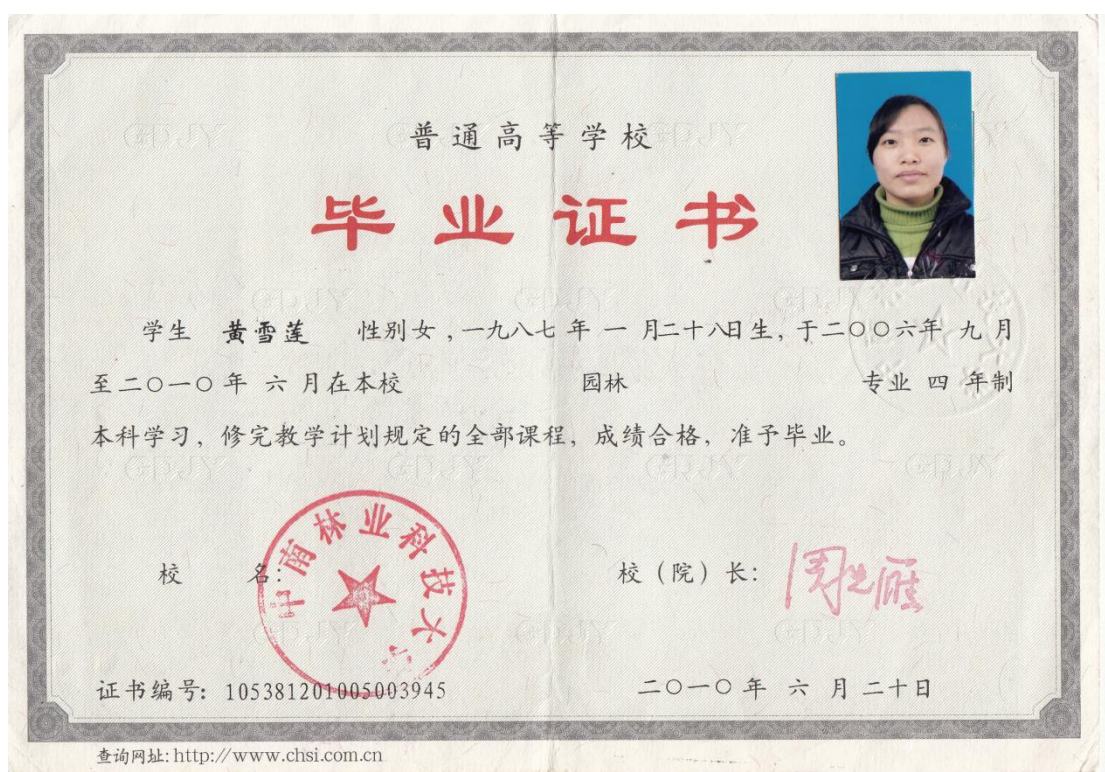 普通高等学校
毕业证书
学生 黄雪莲 性别女，一九八七年 一 月二十八日生，于二○○六年 九 月
至二○一○年 六 月在本校 园林 专业 四 年制
本科学习，修完教学计划规定的全部课程，成绩合格，准予毕业。
中南林业科技大学
校 名：
校（院）长：
证书编号：105381201005003945
二○一○年 六 月二十日
查询网址：http://www.chsi.com.cn